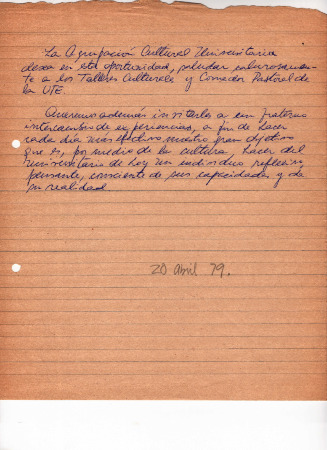 La Agrupación Cultural Universitaria
desea en esta oportunidad, saludar calurosamen-
te a los Talleres Culturales y Comedor Pastoral de
la UTE.
Queremos además invitarles a un fraterno
intercambio de experiencias, a fin de hacer
cada día más efectivo nuestro gran objetivo
que es, por medio de la cultura, hacer del
universitario de hoy un individuo reflexivo,
pensante, consciente de sus capacidades y de
su realidad.
20 Abril 79.